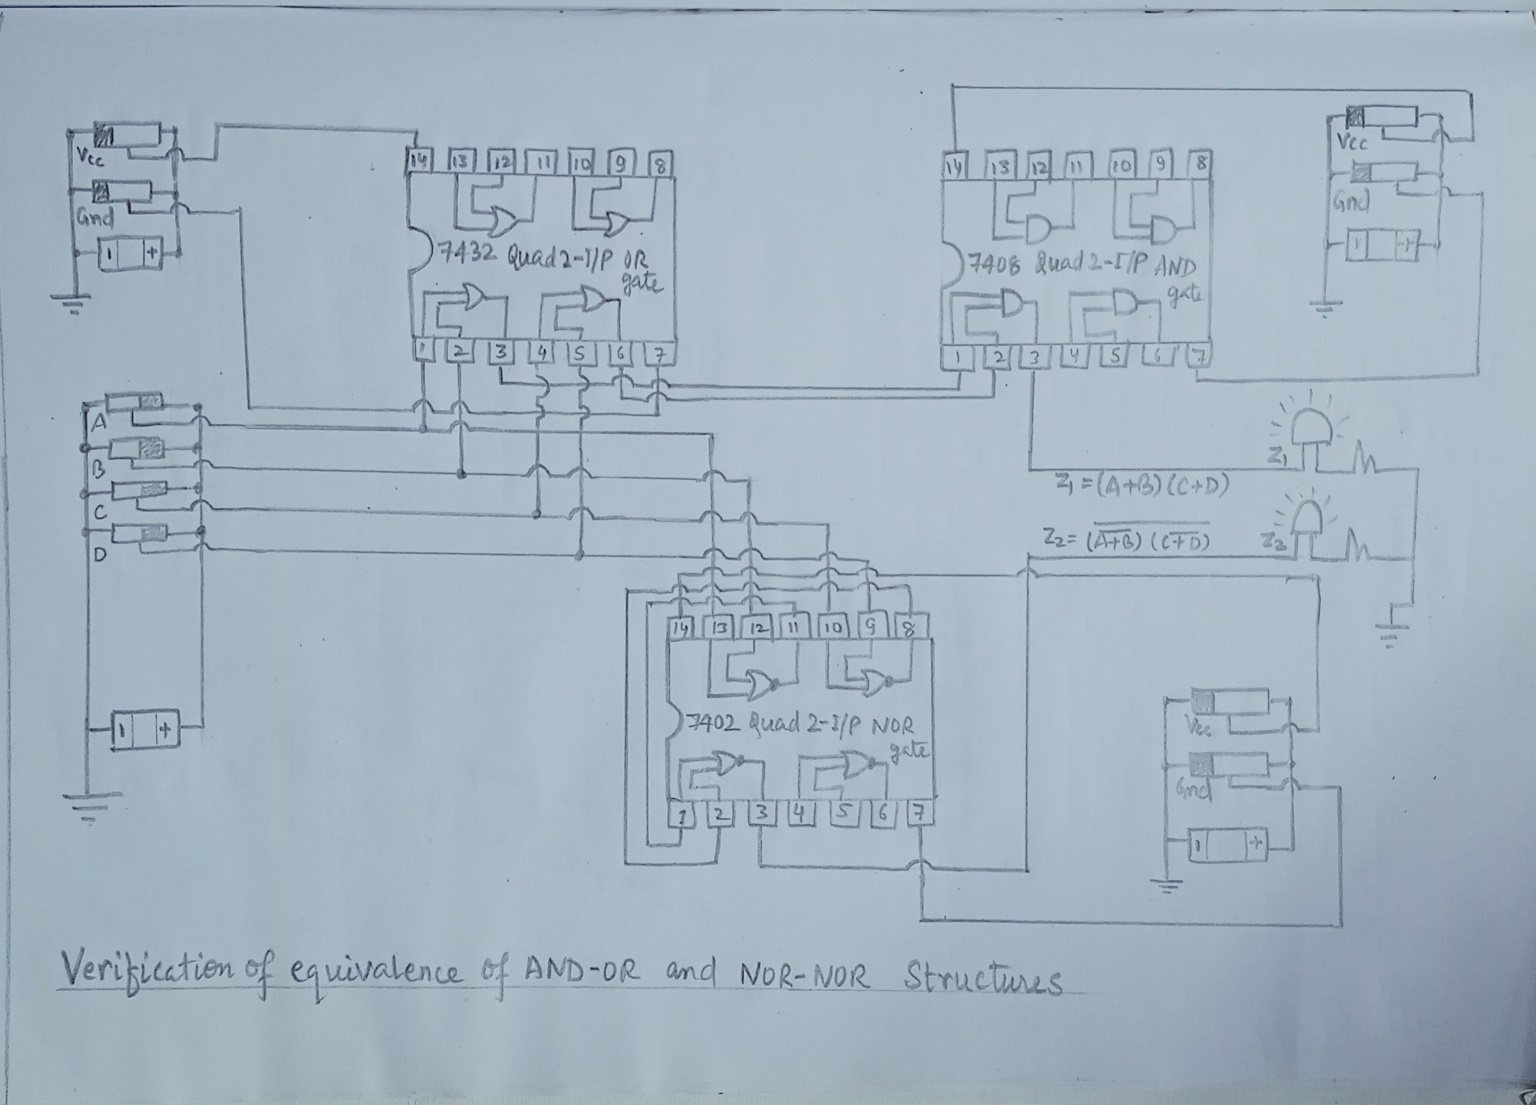 Vcc
Gnd
1 +
14 13 12 11 10 9 8
7432 Quad 2-I/P OR
gate
1 2 3 4 5 6 7
14 13 12 11 10 9 8
7408 Quad 2-I/P AND
gate
1 2 3 4 5 6 7
Vcc
Gnd
1 +
A
B
C
D
1 +
Z₁
Z₁ = (A+B) (C+D)
Z₂ = (A̅+̅B̅) (C̅+̅D̅)
Z₂
14 13 12 11 10 9 8
7402 Quad 2-I/P NOR
gate
1 2 3 4 5 6 7
Vcc
Gnd
1 +
Verification of equivalence of AND-OR and NOR-NOR Structures